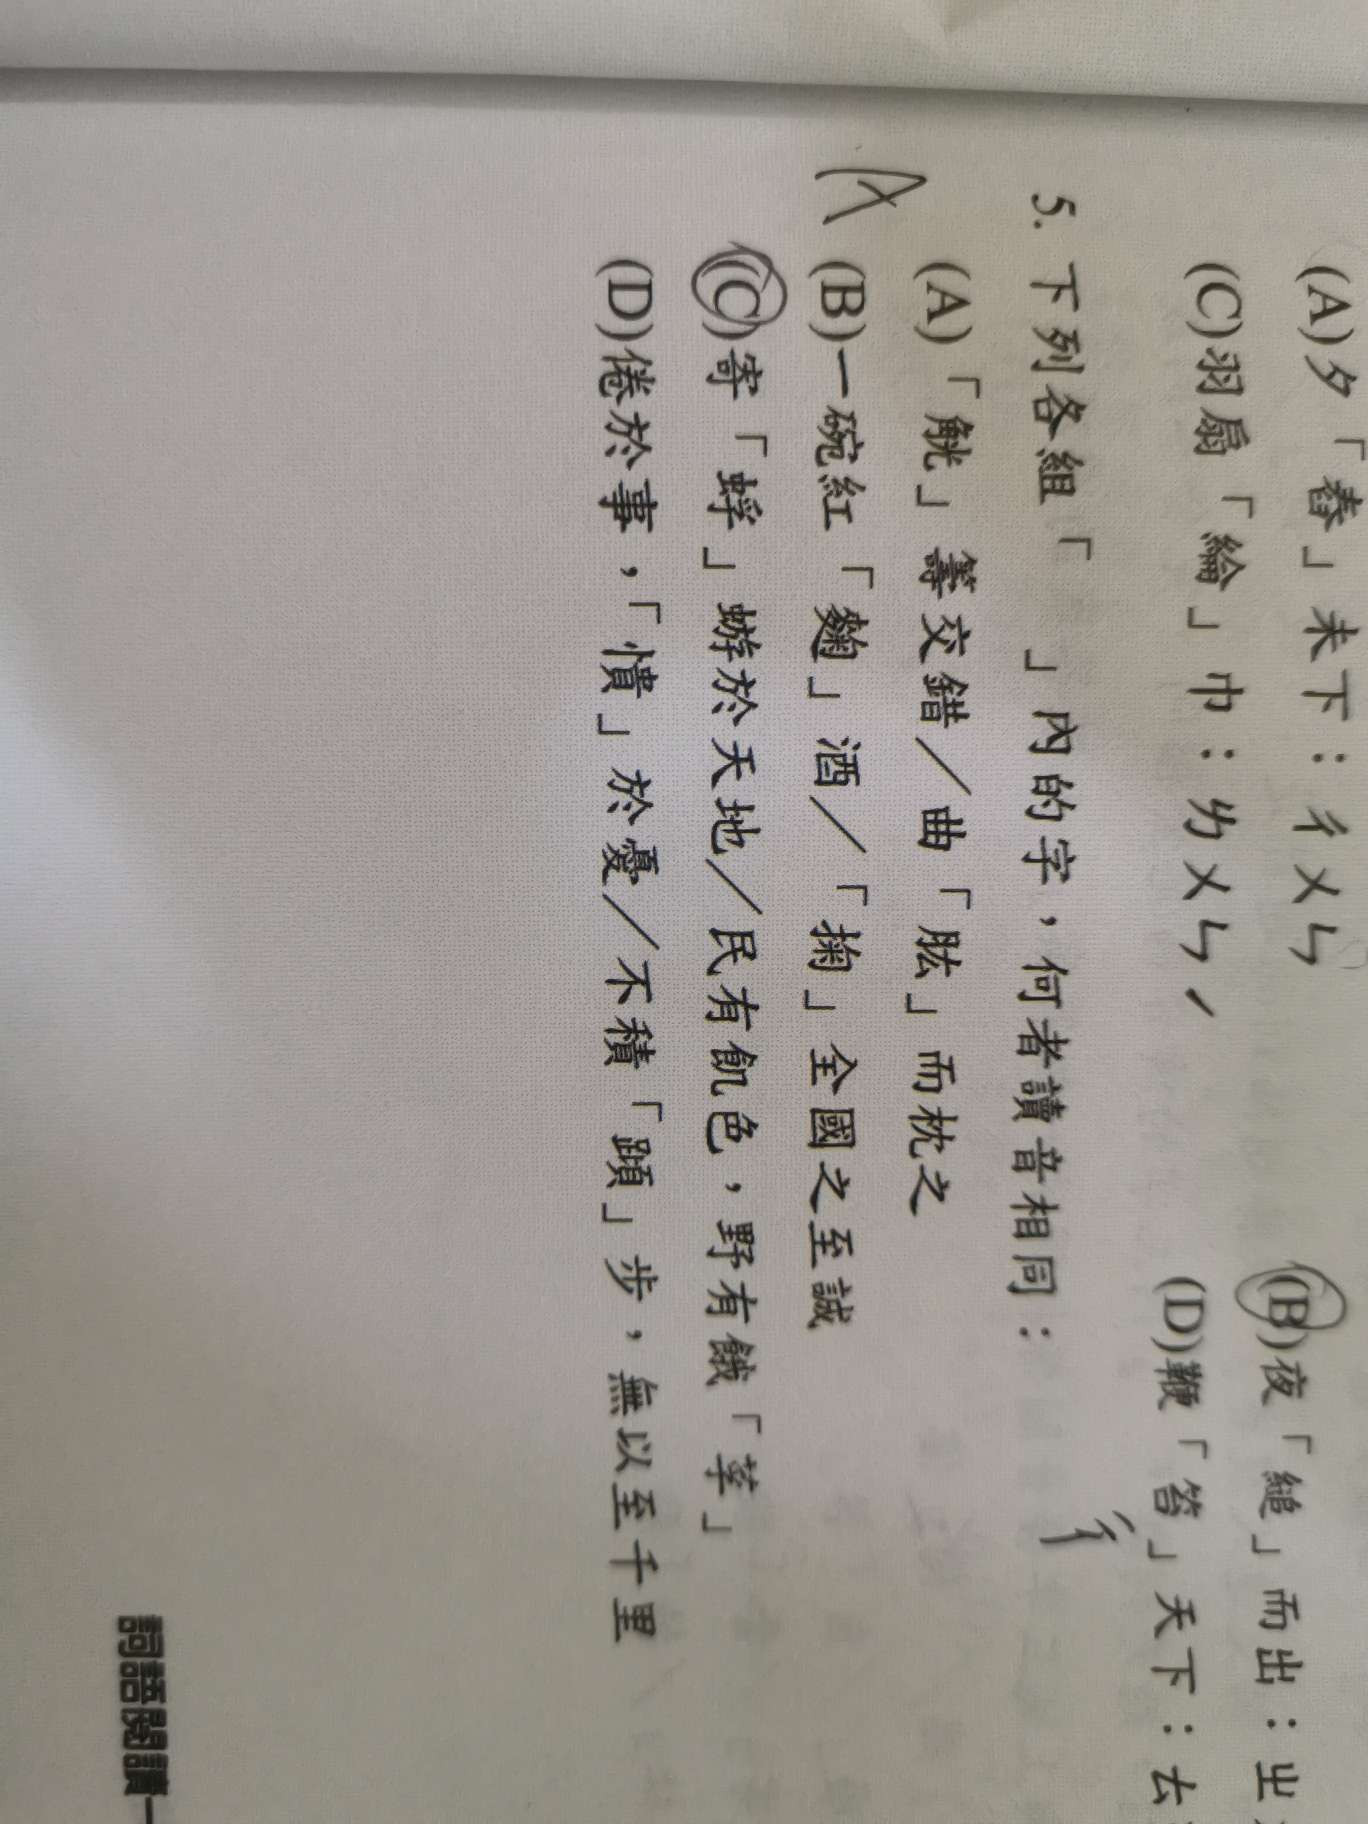 (A)夕「舂」未下：ㄔㄨㄣ
(B)夜「縋」而出：ㄓ
(C)羽扇「綸」巾：ㄌㄨㄣˊ
(D)鞭「笞」天下：ㄊ
ㄔ
5. 下列各組「 」內的字，何者讀音相同：
A
(A)「觥」籌交錯／曲「肱」而枕之
(B)一碗紅「麴」酒／「掬」全國之至誠
(C)寄「蜉」蝣於天地／民有飢色，野有餓「莩」
(D)倦於事，「憒」於憂／不積「蹞」步，無以至千里
詞語閱讀